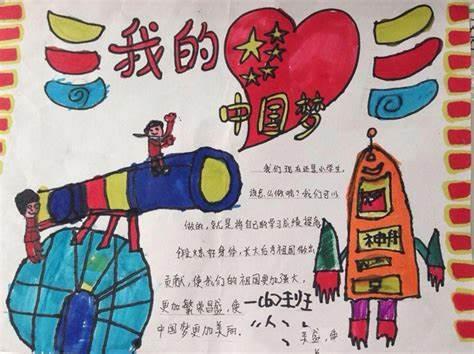 我的
中国梦
我们现在还是小学生,
该怎么做呢?我们可以
做的,就是将自己的学习成绩提高
锻炼好身体,长大后为祖国做出
贡献,使我们的祖国更加强大,
更加繁荣昌盛,使
中国梦更加美丽。
班
神舟